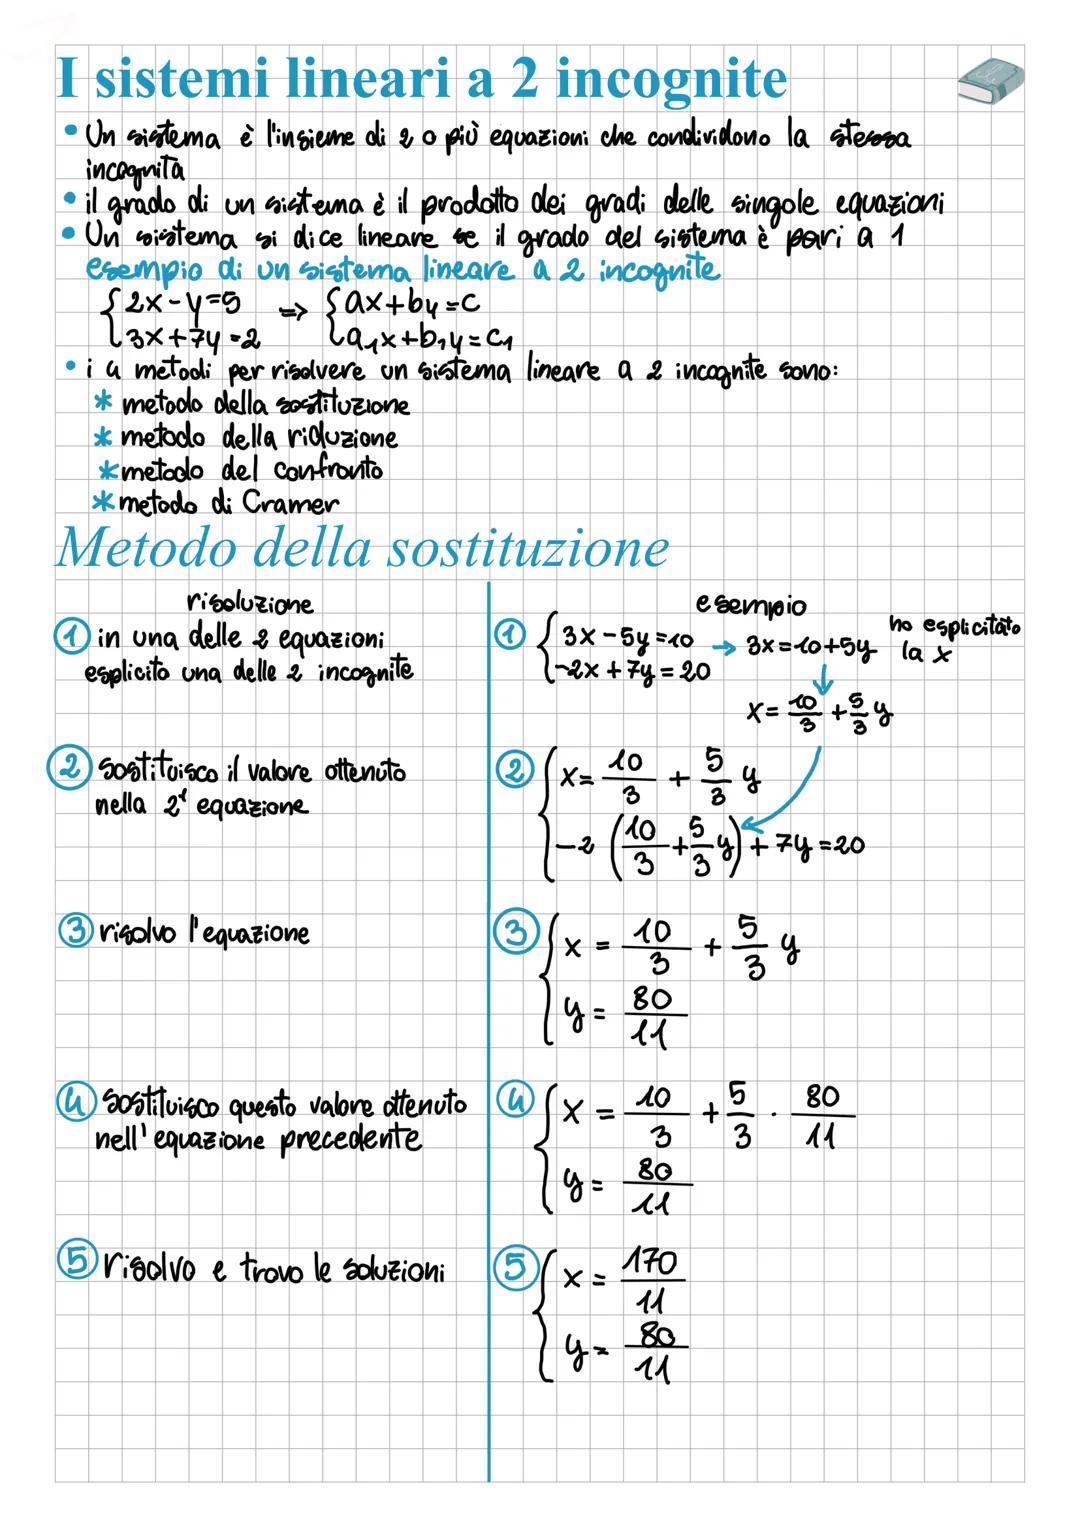 I sistemi lineari a 2 incognite
• Un sistema è l'insieme di 2 o più equazioni che condividono la stessa
incognita
• il grado di un sistema è il prodotto dei gradi delle singole equazioni
• Un sistema si dice lineare se il grado del sistema è pari a 1
esempio di un sistema lineare a 2 incognite
{2x-y=5 => {ax+by=c
3x+7y=2 a₁x+b₁y=c₁
• i 4 metodi per risolvere un sistema lineare a 2 incognite sono:
* metodo della sostituzione
* metodo della riduzione
* metodo del confronto
* metodo di Cramer
Metodo della sostituzione
risoluzione
① in una delle 2 equazioni
esplicito una delle 2 incognite
② sostituisco il valore ottenuto
nella 2ª equazione
③ risolvo l'equazione
④ sostituisco questo valore ottenuto
nell'equazione precedente
⑤ risolvo e trovo le soluzioni
esempio
① {3x-5y=10 → 3x=10+5y ho esplicitato
-2x+7y=20 la x
↓
x=10/3+5/3y
② {x=10/3+5/3y
-2(10/3+5/3y)+7y=20
③ {x=10/3+5/3y
y=80/11
④ {x=10/3+5/3·80/11
y=80/11
⑤ {x=170/11
y=80/11